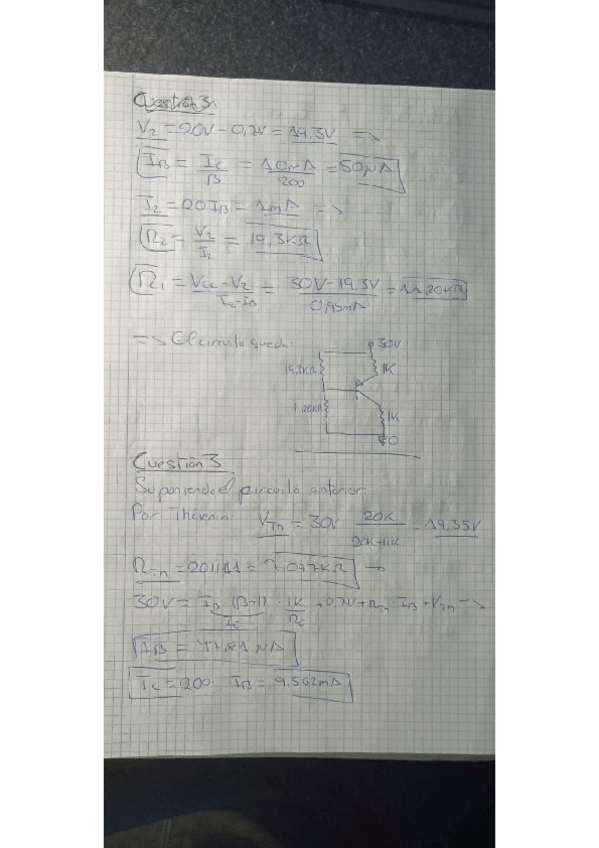 Cuestión 3:
V₂ = 20V - 0,7V = 19,3V =>
I_B = I_C/β = 10mA/200 = 50μA
I₂ = 20I_B = 1mA =>
R₂ = V₂/I₂ = 19,3KΩ
R₁ = (Vcc - V₂)/(I₂ - I_B) = (30V - 19,3V)/0,95mA = 11,26KΩ
=> El circuito queda:
30V
19,3KΩ 1K
1K
0
Cuestión 3
Suponiendo el circuito anterior
Por Thevenin: V_Th = 30V 20K/(20K+11K) = 19,35V
R_Th = 20||11 = 7,097KΩ ->
30V = I_B (β+1) · 1K + 0,7V + R_Th I_B + V_Th =>
I_C R_E
I_B = 47,81 μA
I_C = 200 I_B = 9,562mA